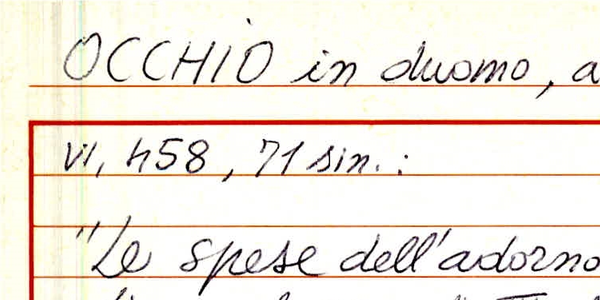 OCCHIO in duomo, a
VI, 458, 71 sin.:
"Le spese dell'adorno